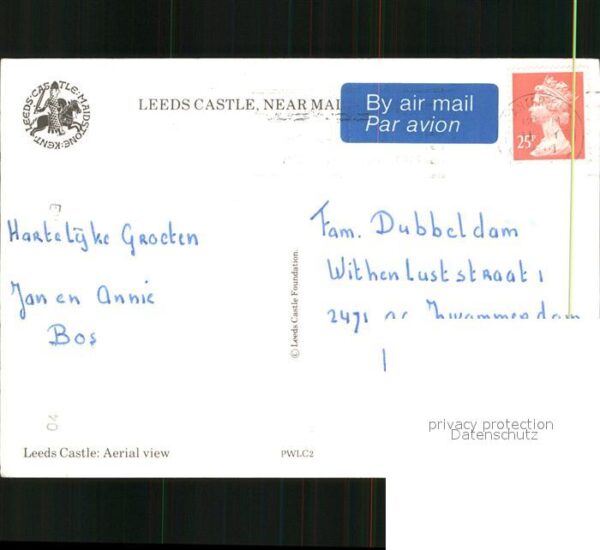 LEEDS·CASTLE·MAIDSTONE·KENT·
LEEDS CASTLE, NEAR MAI
By air mail
Par avion
25P
Hartelijke Groeten
Jan en Annie
Bos
Fam. Dubbeldam
Withenluststraat 1
2471 Zwammerdam
© Leeds Castle Foundation.
04
privacy protection
Datenschutz
Leeds Castle: Aerial view
PWLC2